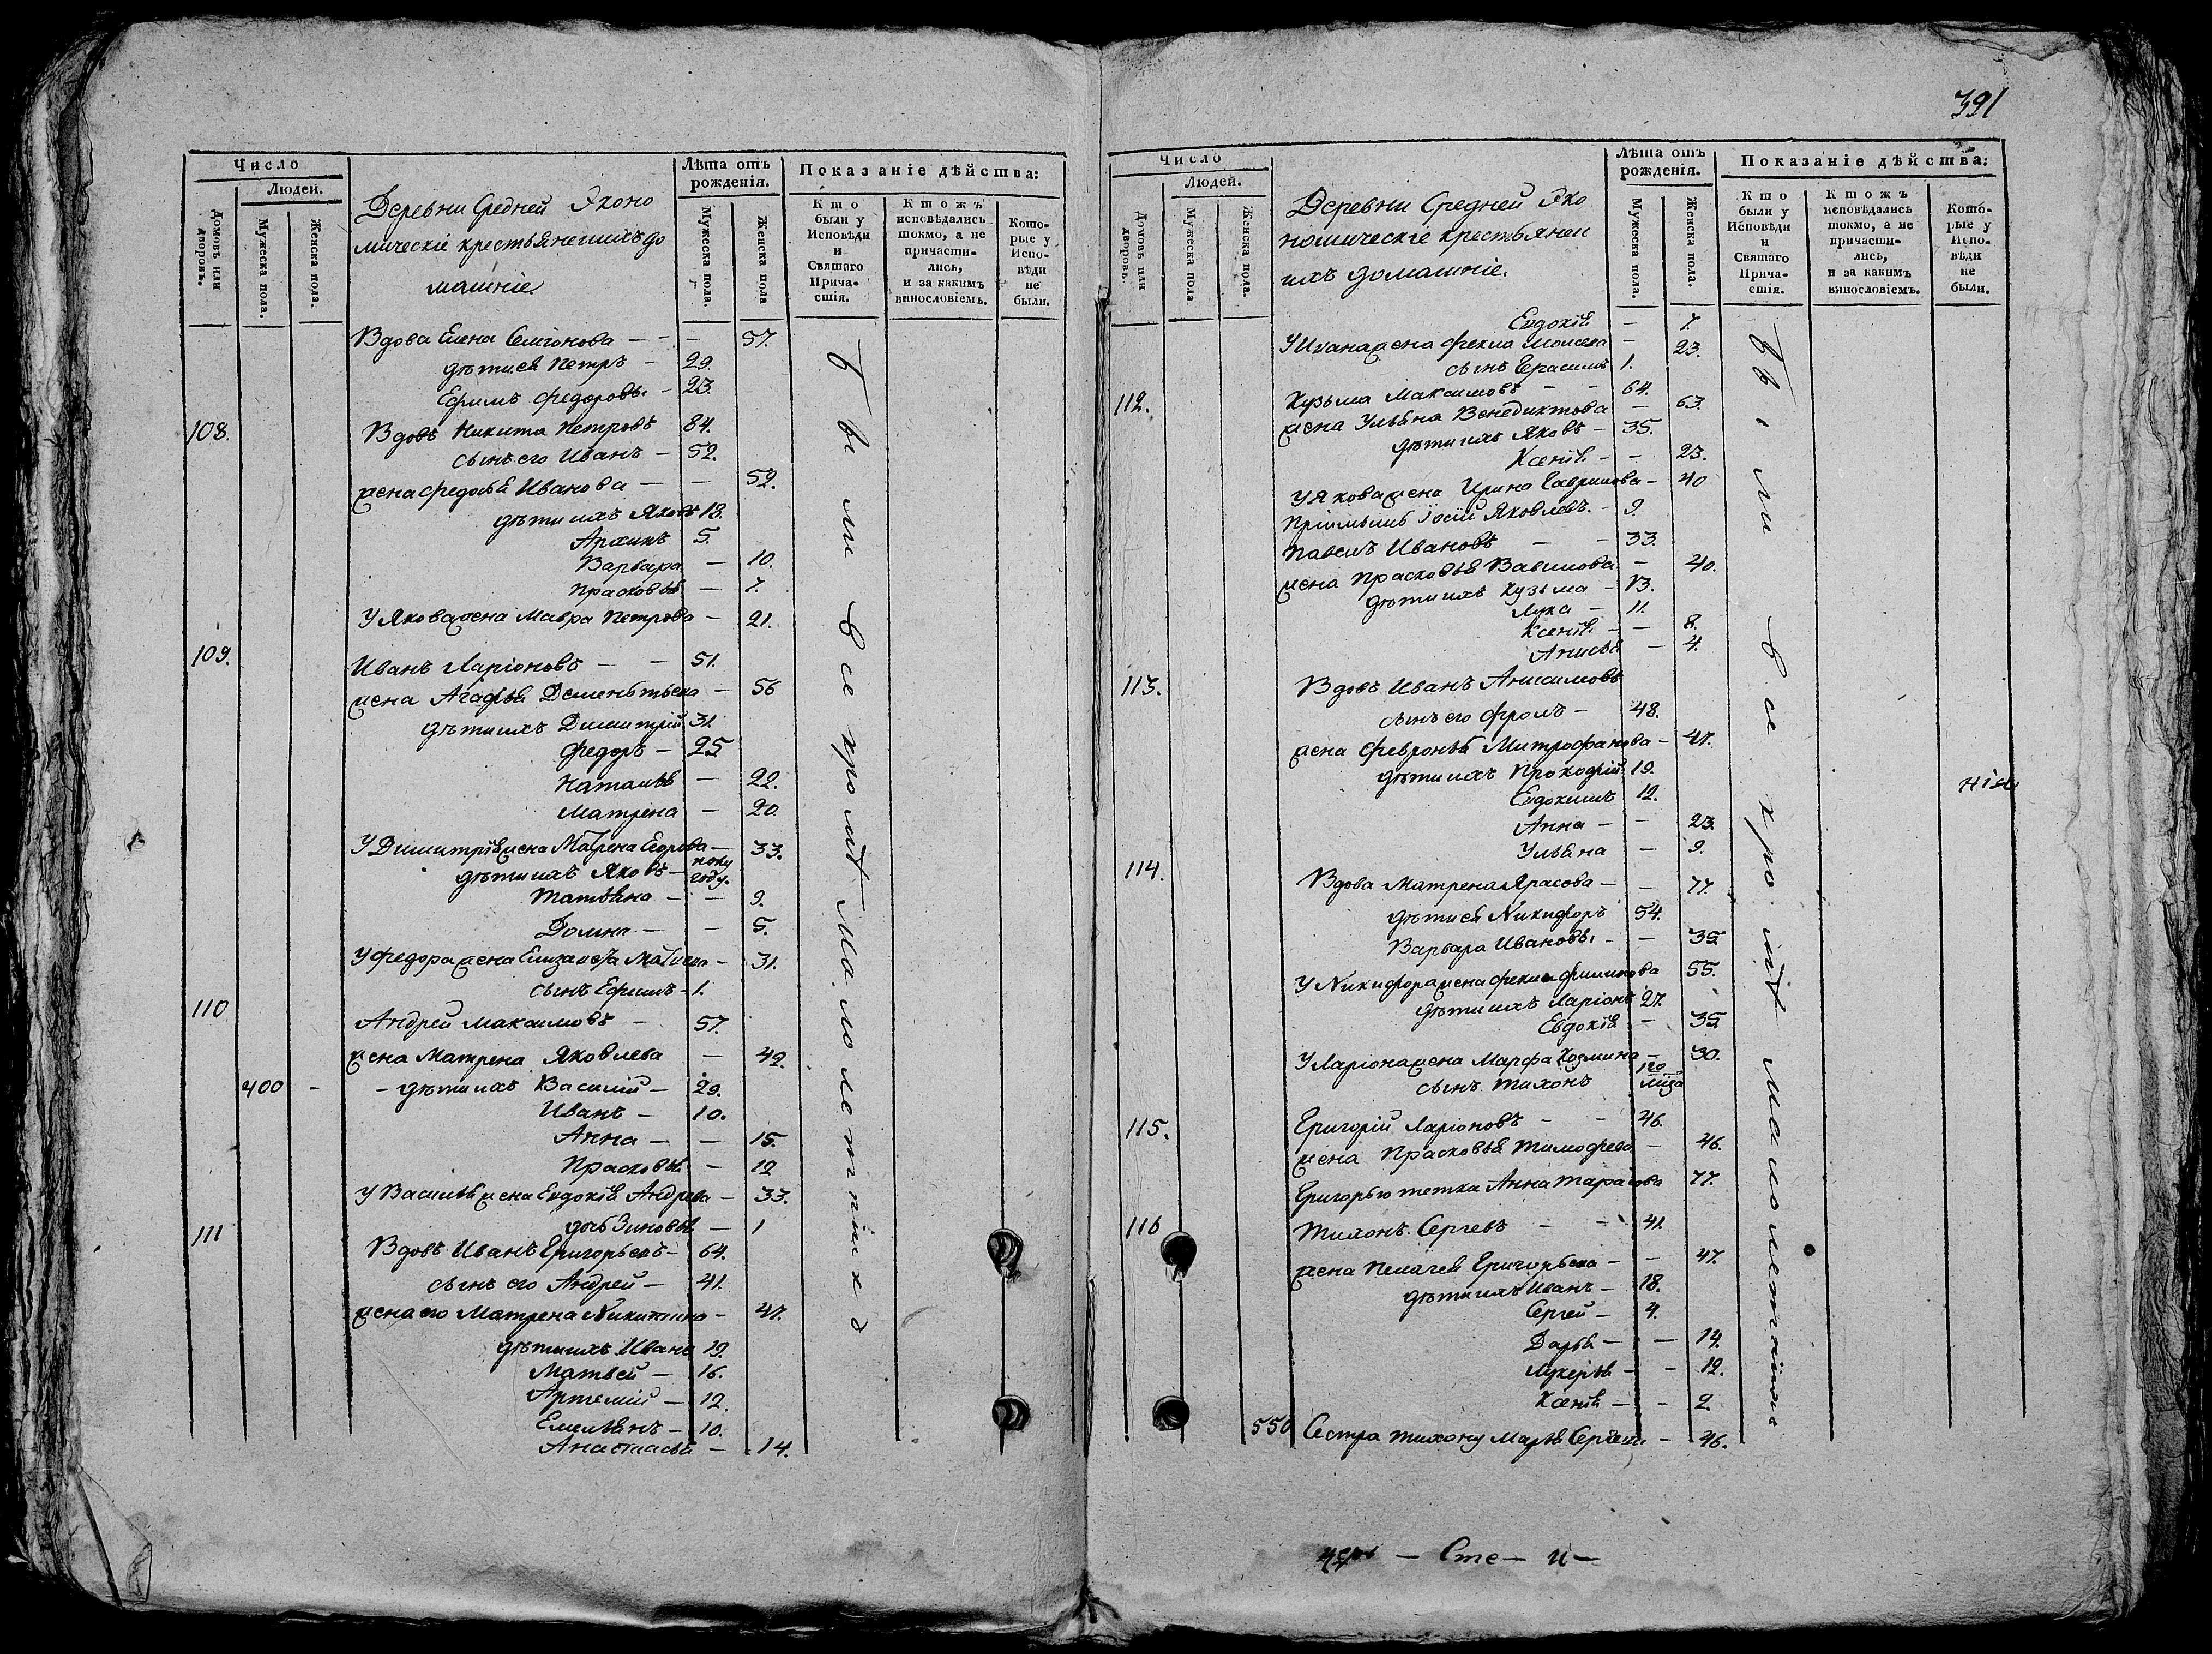 Число
Людей.
Домовъ или дворовъ.
Мужеска пола.
Женска пола.
Деревни Средней Эконо
мическiе крестьяне и ихъ до
машнiе
Лѣта отъ рожденiя.
Мужеска пола.
Женска пола
Показанiе дѣйства:
Кто были у Исповѣди и Святаго Прича-стiя.
Ктожъ исповѣдались токмо, а не причасти-лись, и за какимъ винословiемъ.
Кото-рые у Испо-вѣди не были.
Вдова Елена Семiонова — — — 57.
дѣти ея Петръ — 29.
Ефимъ Федоровы — 23.
108. Вдовъ Никита Петровъ 84.
сынъ его Иванъ — 52.
жена Федосья Иванова — — 52.
дѣти ихъ Яковъ 18.
Архипъ 5.
Варвара — 10.
Прасковья — 7.
У Якова жена Мавра Петрова — 21.
109. Иванъ Ларiоновъ — — 51.
жена Агафья Дементьева — 56
дѣти ихъ Димитрiй 31.
Федоръ — 25
Наталья — 22.
Матрена — 20.
У Димитрiя жена Матрена Егорова — 33.
дѣти ихъ Яковъ — полу году.
Татьяна — — 9.
Домна — — 5.
У Федора жена — 31.
сынъ Ефимъ — 1.
110 Андрей Максимовъ — 57.
жена Матрена Яковлева — 42.
400 — — дѣти ихъ Василiй — 29.
Иванъ — 10.
Анна — — 15.
Прасковья — 12
У Василья жена Евдокiя Андрева — 33.
дочь Зиновья — 1
111 Вдовъ Иванъ Григорьевъ — 64.
сынъ его Андрей — 41.
жена его Матрена Никитина — 47.
дѣти ихъ Иванъ 19.
Матвей — 16.
Артемiй — 12.
Емельянъ — 10.
Анастасья — 14.
были все кромѣ малолетнiихъ
391
Число
Людей.
Домовъ или дворовъ.
Мужеска пола
Женска пола.
Деревни Средней Эко
номическiе крестьяне и
ихъ домашнiе.
Лѣта отъ рожденiя.
Мужеска пола.
Женска пола.
Показанiе дѣйства:
Кто были у Исповѣди и Святаго Прича-стiя.
Ктожъ исповѣдались токмо, а не причасти-лись, и за какимъ винословiемъ.
Кото-рые у Испо-вѣди не были.
Евдокiя — 7.
У Ивана жена Фекла — 23.
сынъ Герасимъ 1.
112. Кузьма Максимовъ — — 64.
жена Ульяна Венедиктова — 63.
дѣти ихъ Яковъ — 35.
Ксенiя — — 23.
У Якова жена Ирина Гаврилова — 40
Прiимышъ Яковлевъ — 9.
Ивановъ — — 33.
жена Прасковья Вавилова — 40.
дѣти ихъ Кузьма — 13.
Лука — 11.
Ксенiя — — 8.
Анисья — 4.
113. Вдовъ Иванъ Анисимовъ
сынъ его Фролъ — 48.
жена Февронья Митрофанова — 47.
дѣти ихъ Прокофiй 19.
Евдокимъ 12.
Анна — — 23.
Ульяна — 9.
114. Вдова Матрена — — 77.
дѣти ея Никифоръ 54.
Варвара Ивановы — — 35.
У Никифора жена Фекла Филипова 55.
дѣти ихъ Ларiонъ 27.
Евдокiя — 35.
У Ларiона жена Марфа Козмина — 30.
сынъ Тихонъ
115. Григорiй Ларiоновъ — — 46.
жена Прасковья Тимофеева — 46.
Григорью тетка Анна Тарасова 77.
116 Тихонъ Сергевъ — — 41.
жена Пелагея Григорьева — — 47.
дѣти ихъ Иванъ — 18.
Сергей — 4.
Дарья — — 14.
Лукерья — — 12.
Ксенiя — — 2.
550 Сестра Тихону Марья — 46.
были все кромѣ малолетнiихъ
— Сте — и —